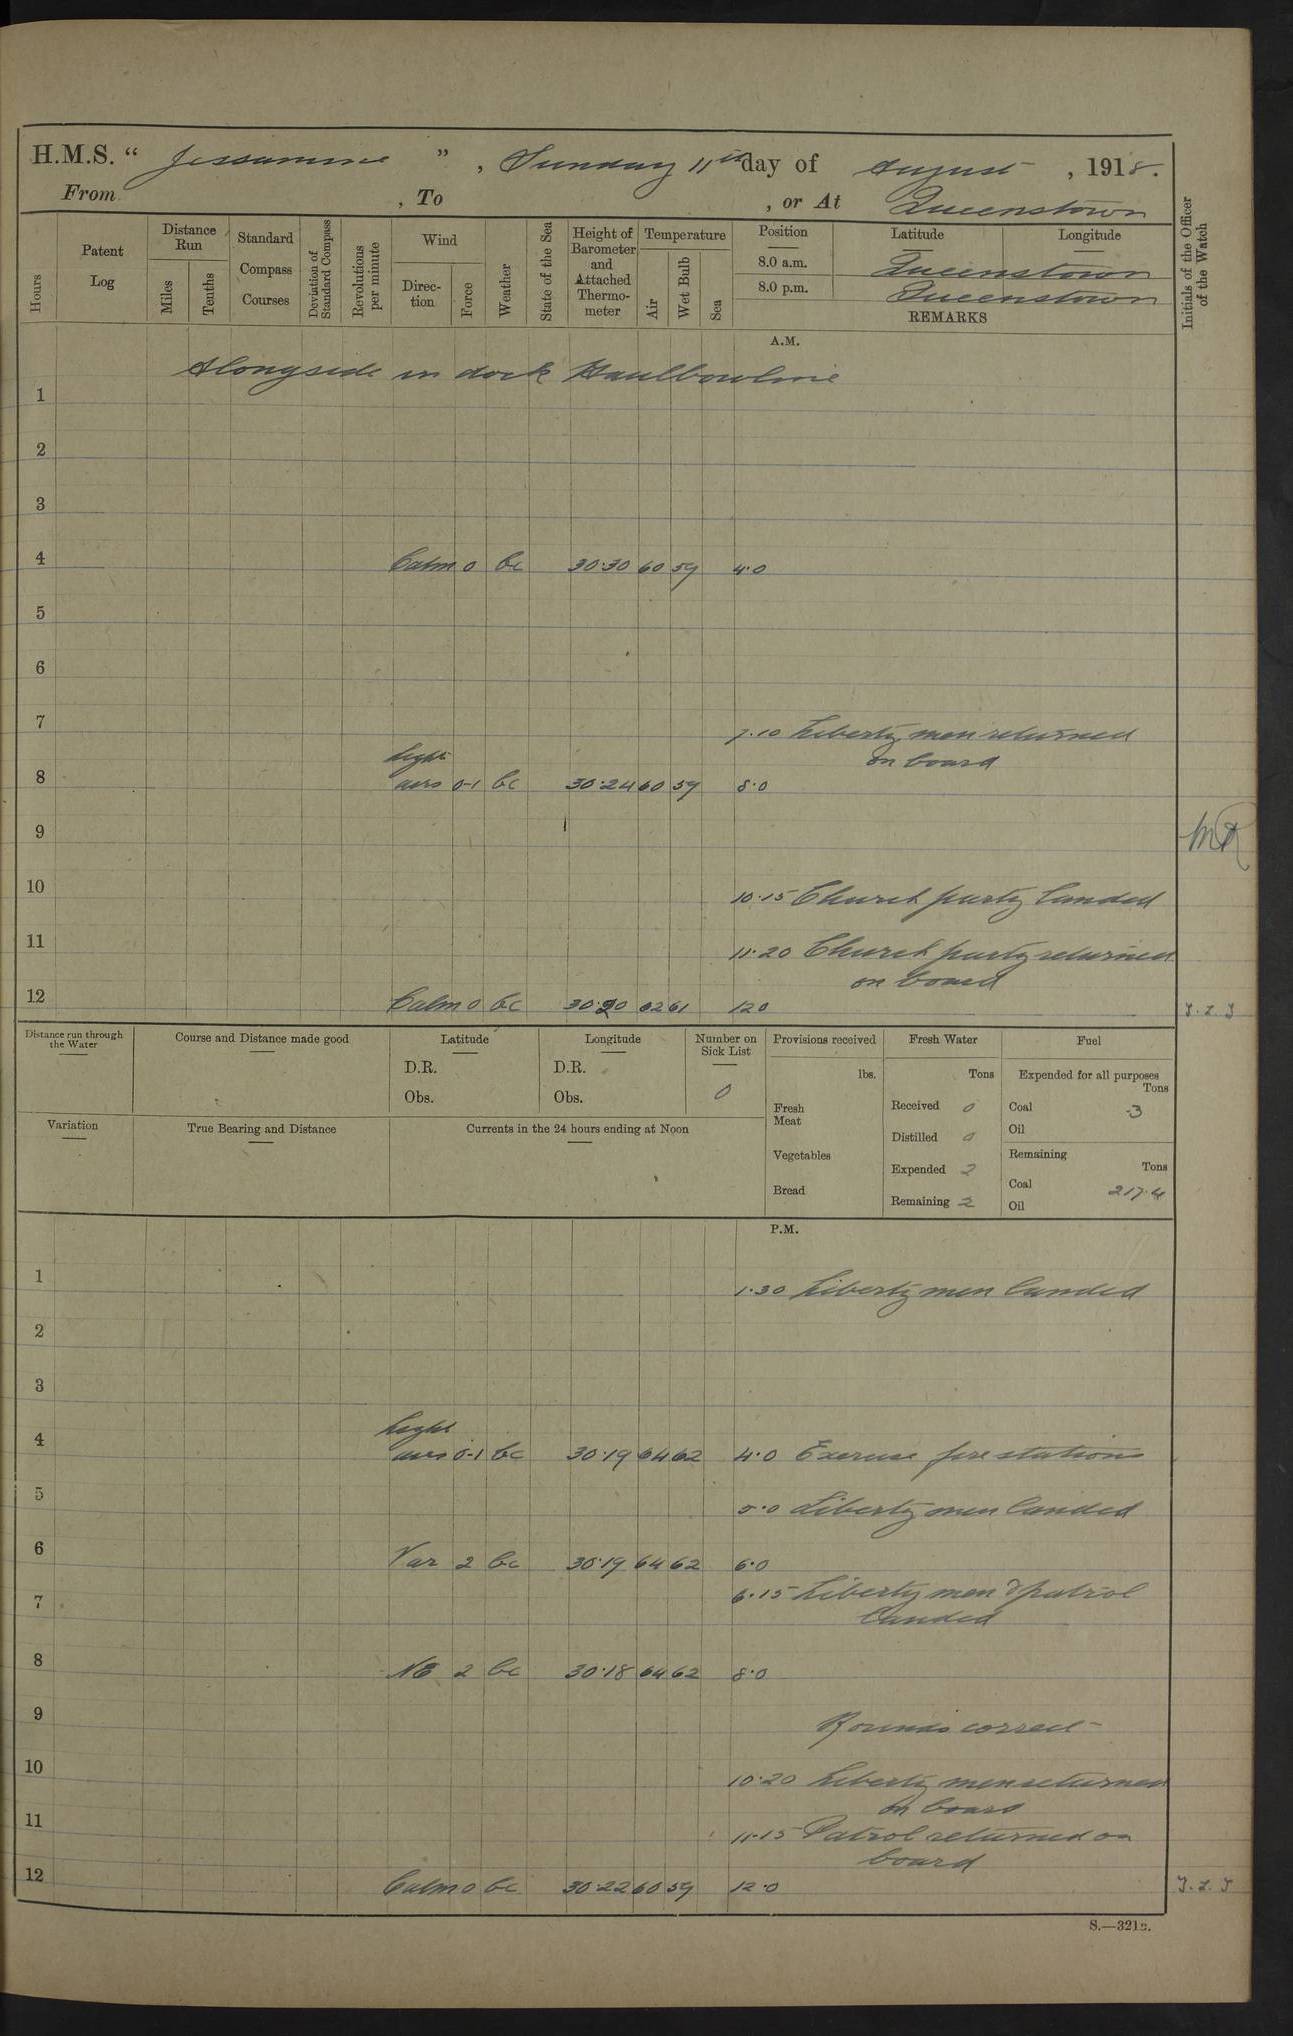 H.M.S. “ Jessamine ” , Sunday 11th day of August , 1918.
From , To , or At Queenstown
Hours
Patent Log
Distance Run
Miles
Tenths
Standard Compass Courses
Deviation of Standard Compass
Revolutions per minute
Wind
Direction
Force
Weather
State of the Sea
Height of Barometer and Attached Thermometer
Temperature
Air
Wet Bulb
Sea
Position Latitude Longitude
8.0 a.m. Queenstown
8.0 p.m. Queenstown
REMARKS
Initials of the Officer of the Watch
A.M.
Alongside in dock Haulbowline
1
2
3
4 Calm 0 bc 30·30 60 59 4·0
5
6
7 7.10 Liberty men returned
light on board
8 airs 0-1 bc 30·24 60 59 8·0
9
10 10·15 Church party landed
11 11·20 Church party returned
on board
12 Calm 0 bc 30·20 62 61 12 0
Distance run through the Water
Course and Distance made good
Latitude
D.R.
Obs.
Longitude
D.R.
Obs.
Number on Sick List
0
Variation
True Bearing and Distance
Currents in the 24 hours ending at Noon
Provisions received
lbs.
Fresh Meat
Vegetables
Bread
Fresh Water
Tons
Received 0
Distilled 0
Expended 2
Remaining 2
Fuel
Expended for all purposes
Tons
Coal ·3
Oil
Remaining
Tons
Coal 217·4
Oil
P.M.
1 1·30 Liberty men landed
2
3
light
4 airs 0-1 bc 30·19 64 62 4·0 Exercise fire stations
5 5·0 Liberty men landed
6 Var 2 bc 30·19 64 62 6·0
7 6·15 Liberty men & patrol
landed
8 NE 2 bc 30·18 64 62 8·0
9 Rounds correct
10 10·20 Liberty men returned
on board
11 11·15 Patrol returned on
board
12 Calm 0 bc 30·22 60 59 12·0
S.—321a.